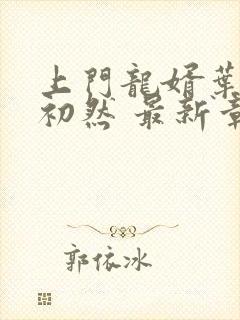 上門龍婿葉
初然 最新章
郭依冰